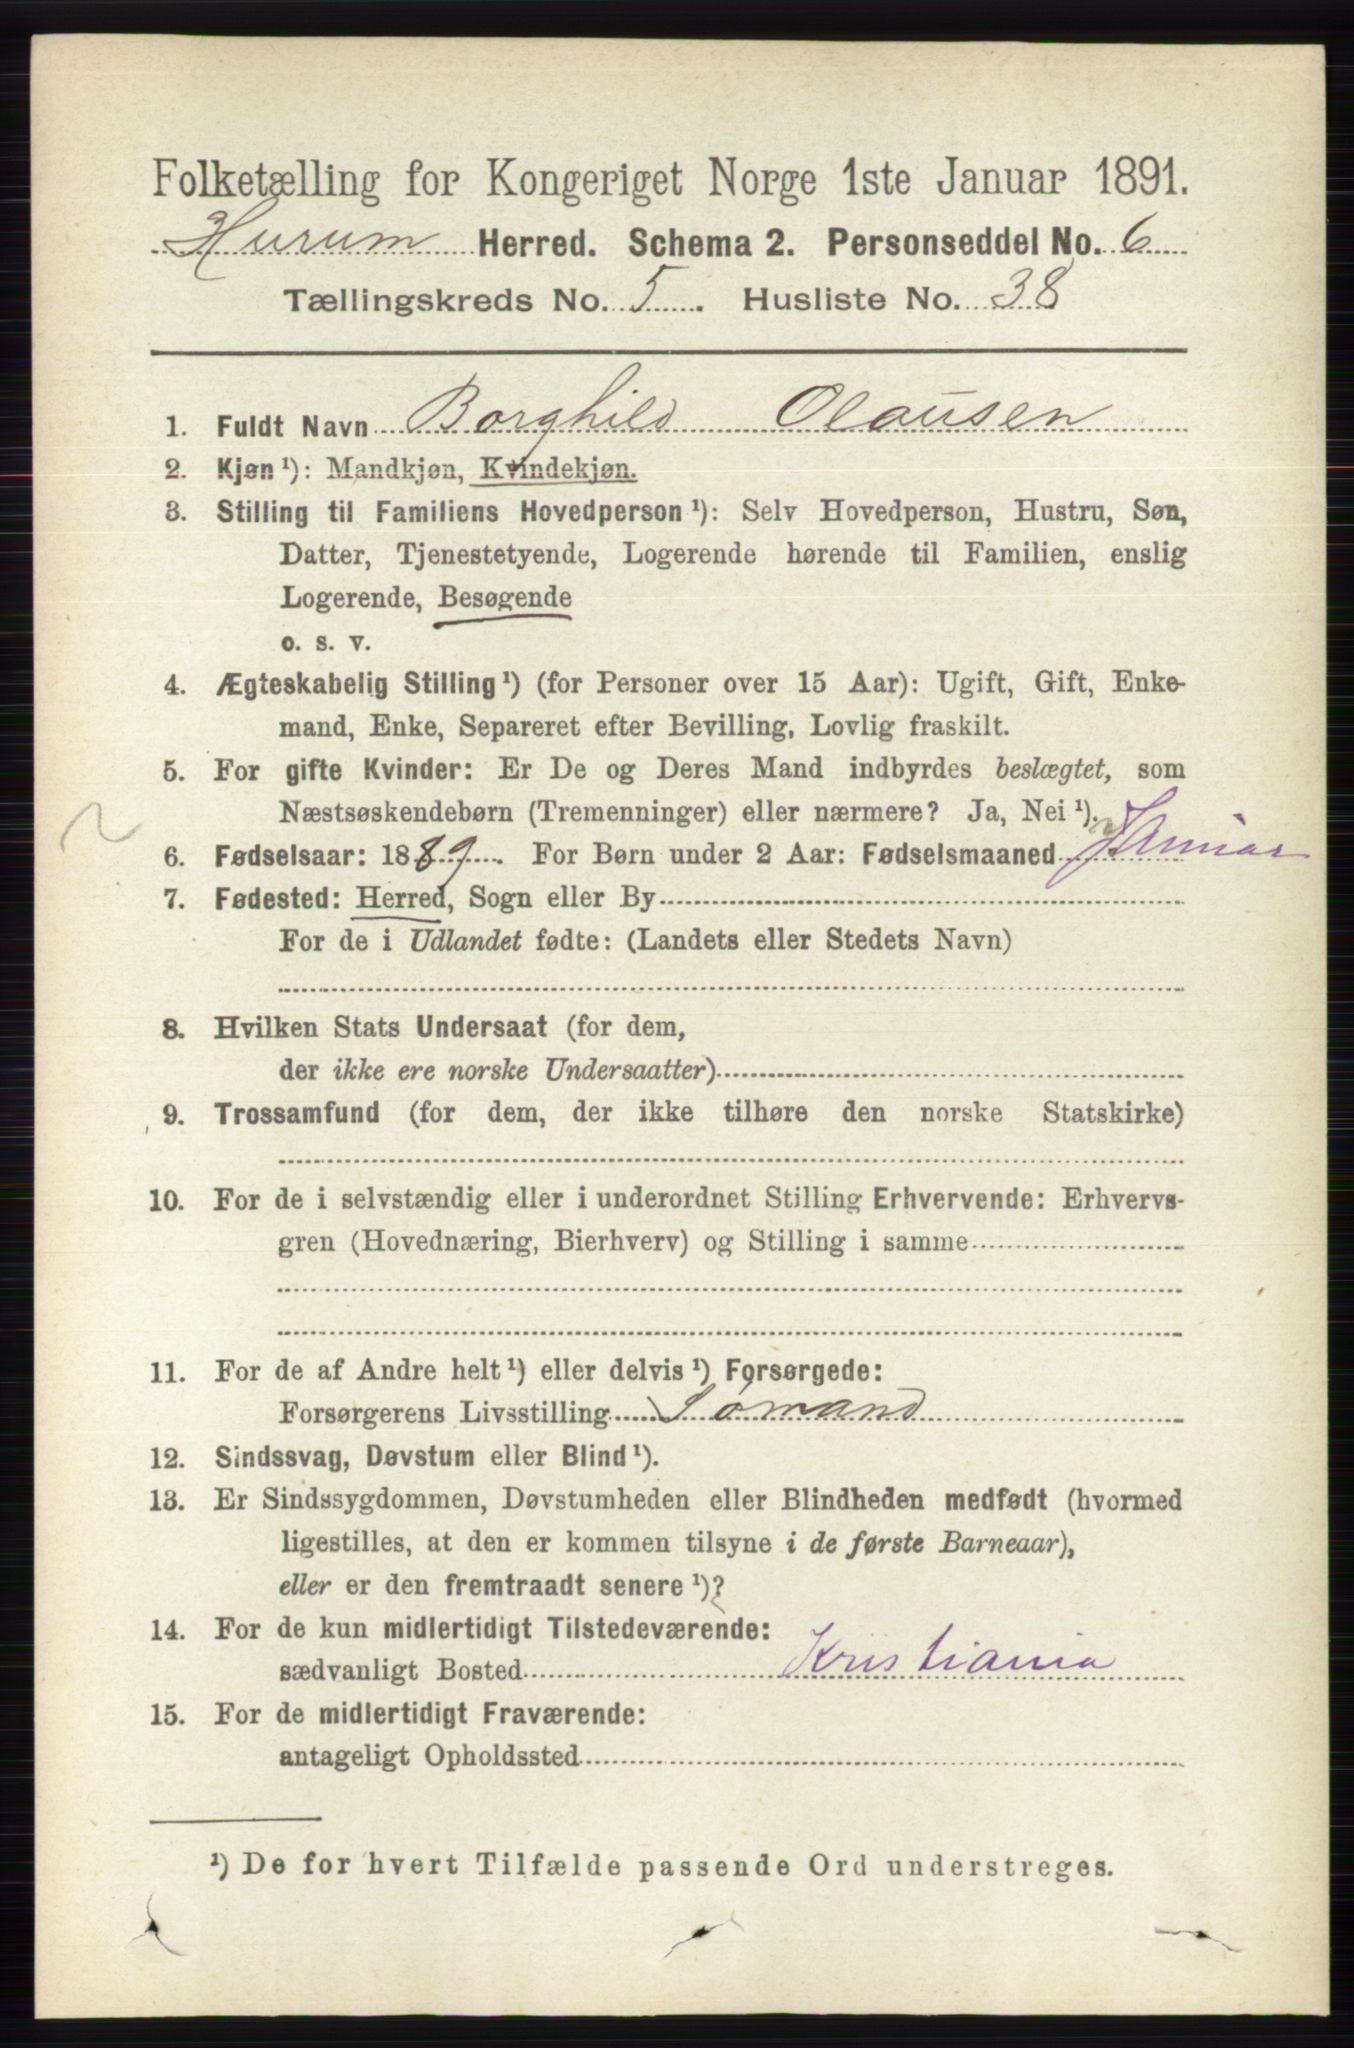 Folketælling for Kongeriget Norge 1ste Januar 1891.
Hurum Herred. Schema 2. Personseddel No. 6
Tællingskreds No. 5. Husliste No. 38
1. Fuldt Navn Borghild Olausen
2. Kjøn ¹): Mandkjøn, Kvindekjøn.
3. Stilling til Familiens Hovedperson ¹): Selv Hovedperson, Hustru, Søn,
Datter, Tjenestetyende, Logerende hørende til Familien, enslig
Logerende, Besøgende
o. s. v.
4. Ægteskabelig Stilling ¹) (for Personer over 15 Aar): Ugift, Gift, Enke-
mand, Enke, Separeret efter Bevilling, Lovlig fraskilt.
5. For gifte Kvinder: Er De og Deres Mand indbyrdes beslægtet, som
Næstsøskendebørn (Tremenninger) eller nærmere? Ja, Nei ¹).
6. Fødselsaar: 1889. For Børn under 2 Aar: Fødselsmaaned Januar
7. Fødested: Herred, Sogn eller By
For de i Udlandet fødte: (Landets eller Stedets Navn)
8. Hvilken Stats Undersaat (for dem,
der ikke ere norske Undersaatter)
9. Trossamfund (for dem, der ikke tilhøre den norske Statskirke)
10. For de i selvstændig eller i underordnet Stilling Erhvervende: Erhvervs-
gren (Hovednæring, Bierhverv) og Stilling i samme
11. For de af Andre helt ¹) eller delvis ¹) Forsørgede:
Forsørgerens Livsstilling Sømand
12. Sindssvag, Døvstum eller Blind ¹).
13. Er Sindssygdommen, Døvstumheden eller Blindheden medfødt (hvormed
ligestilles, at den er kommen tilsyne i de første Barneaar),
eller er den fremtraadt senere ¹)?
14. For de kun midlertidigt Tilstedeværende:
sædvanligt Bosted Kristiania
15. For de midlertidigt Fraværende:
antageligt Opholdssted
¹) De for hvert Tilfælde passende Ord understreges.